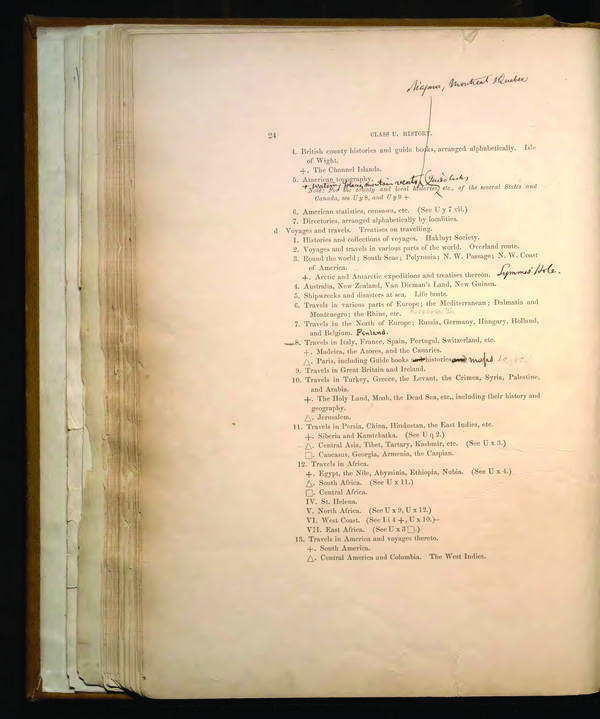 Niagara, Montreal & Quebec
24 CLASS U. HISTORY.
4. British county histories and guide books, arranged alphabetically. Isle
of Wight.
+. The Channel Islands.
5. American topography.
+ watering places, mountain resorts, Guide books
Note: For the county and local histories, etc., of the several States and
Canada, see U y 8, and U y 9 +.
6. American statistics, censuses, etc. (See U y 7 vii.)
7. Directories, arranged alphabetically by localities.
d Voyages and travels. Treatises on travelling.
1. Histories and collections of voyages. Hakluyt Society.
2. Voyages and travels in various parts of the world. Overland route.
3. Round the world; South Seas; Polynesia; N. W. Passage; N. W. Coast
of America.
+. Arctic and Antarctic expeditions and treatises thereon. Symmes' Hole.
4. Australia, New Zealand, Van Dieman's Land, New Guinea.
5. Shipwrecks and disasters at sea. Life boats.
6. Travels in various parts of Europe; the Mediterranean; Dalmatia and
Montenegro; the Rhine, etc.
7. Travels in the North of Europe; Russia, Germany, Hungary, Holland,
and Belgium. Finland.
8. Travels in Italy, France, Spain, Portugal, Switzerland, etc.
+. Madeira, the Azores, and the Canaries.
△. Paris, including Guide books and histories and maps
9. Travels in Great Britain and Ireland.
10. Travels in Turkey, Greece, the Levant, the Crimea, Syria, Palestine,
and Arabia.
+. The Holy Land, Moab, the Dead Sea, etc., including their history and
geography.
△. Jerusalem.
11. Travels in Persia, China, Hindustan, the East Indies, etc.
+. Siberia and Kamtchatka. (See U q 2.)
△. Central Asia, Tibet, Tartary, Kashmir, etc. (See U x 3.)
□. Caucasus, Georgia, Armenia, the Caspian.
12. Travels in Africa.
+. Egypt, the Nile, Abyssinia, Ethiopia, Nubia. (See U x 4.)
△. South Africa. (See U x 11.)
□. Central Africa.
IV. St. Helena.
V. North Africa. (See U x 9, U x 12.)
VI. West Coast. (See I i 4 +, U x 10.)
VII. East Africa. (See U x 3 □.)
13. Travels in America and voyages thereto.
+. South America.
△. Central America and Colombia. The West Indies.